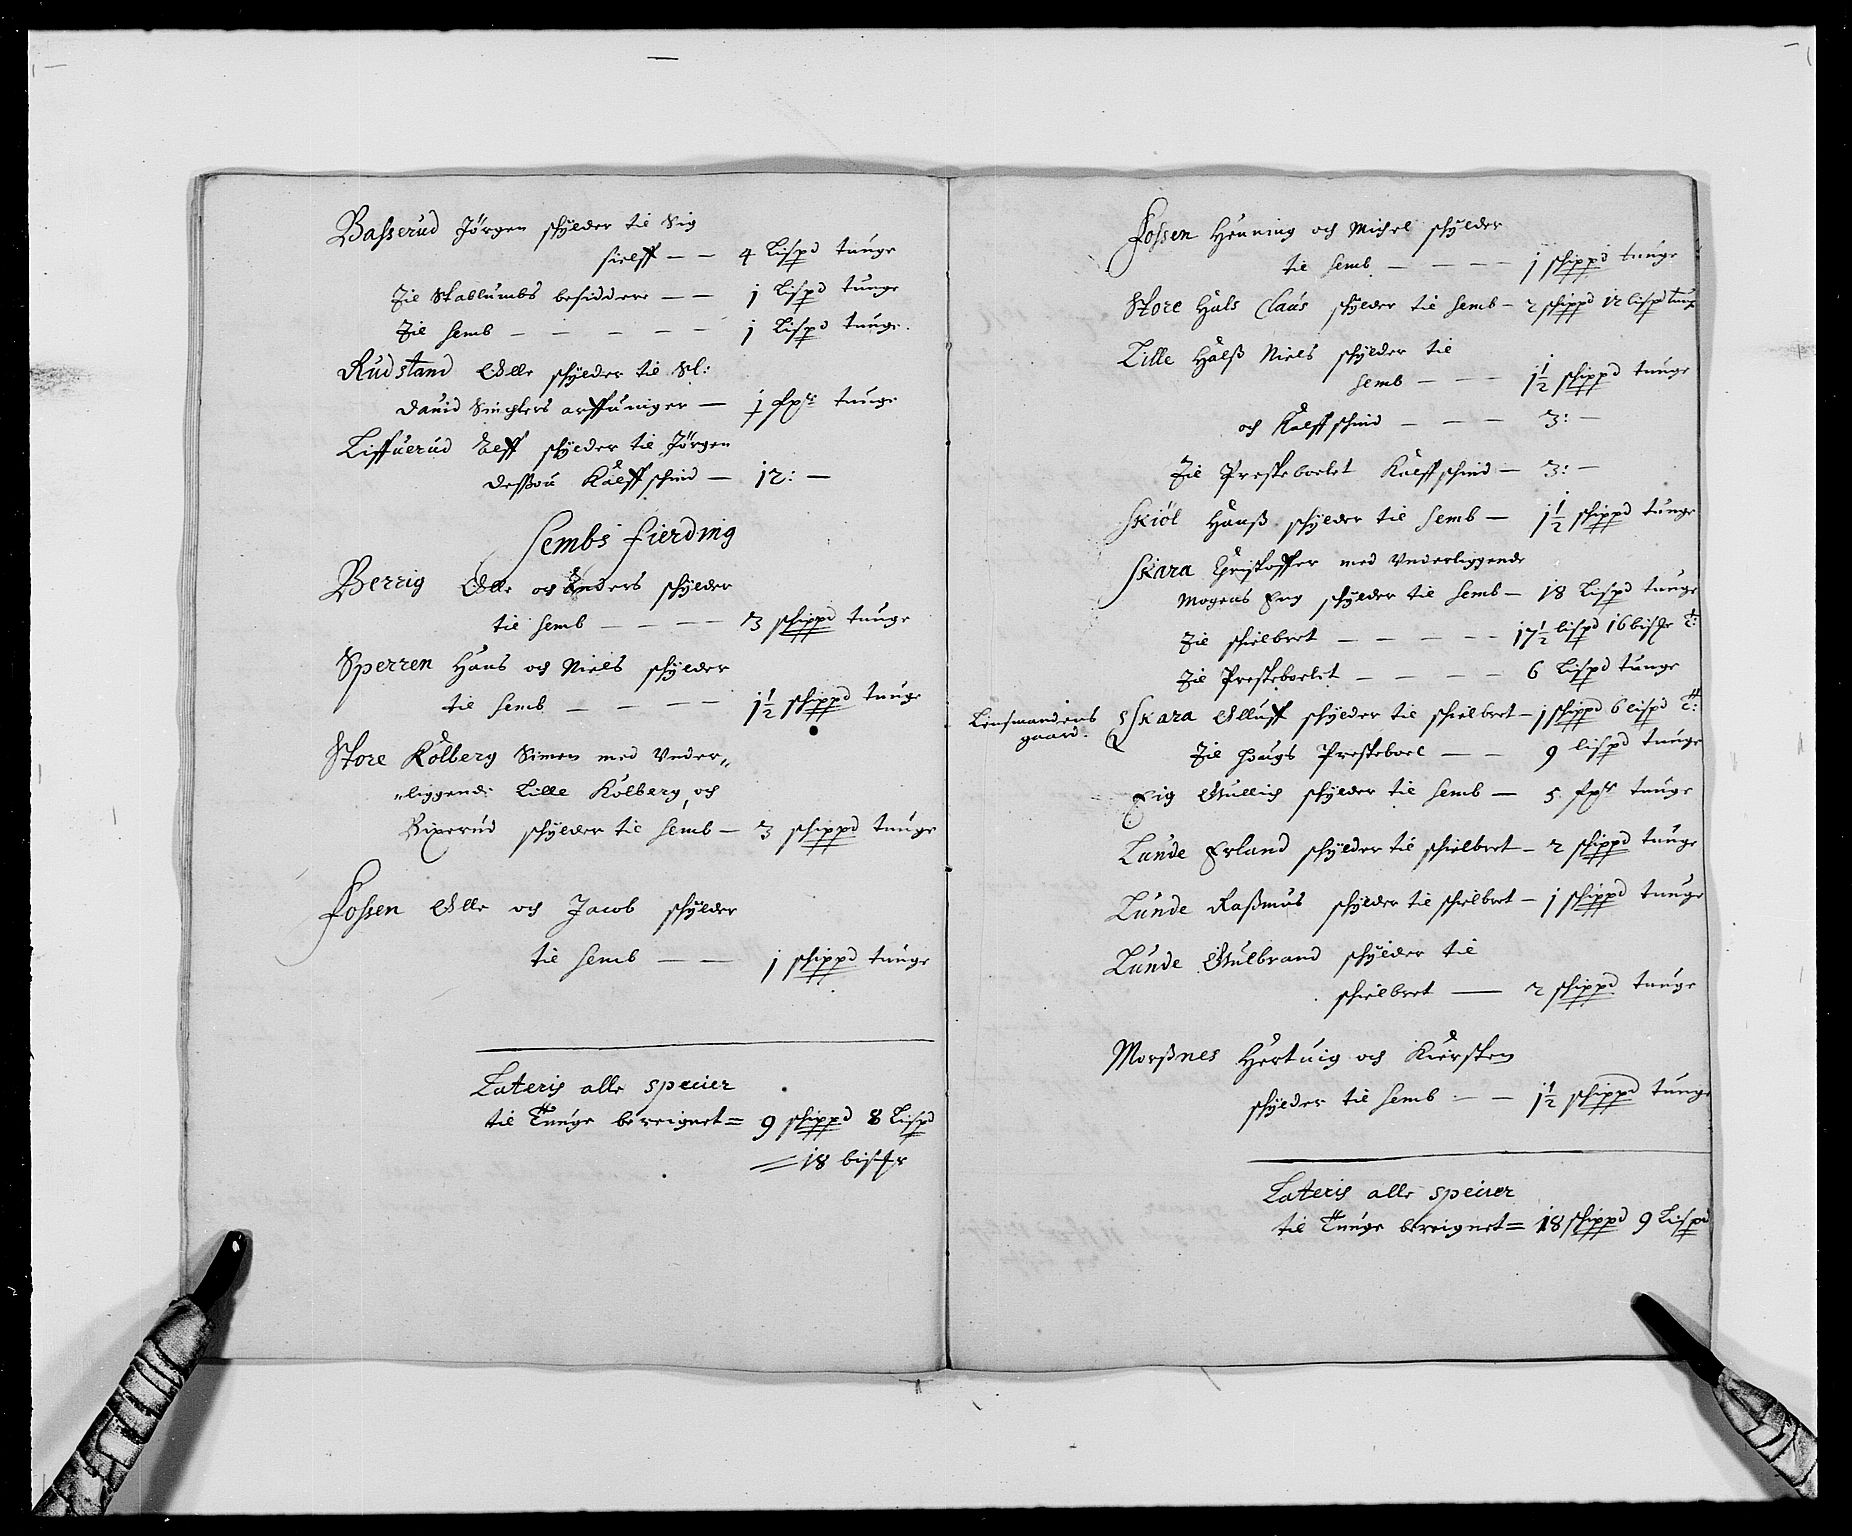 Basserud Jörgen schÿlder til Sig
sielff — — 4 Lispd tunge
Til Stallumbs besiddere — — 1 Lispd tunge
Til Semb — — — — — 1 Lispd tunge.
Rudstand Olle schÿlder til Sl:
David Sinchlers arffuinger — 1 fps tunge
Liffuerud Leff schÿlder til Jörgen
Kalffschind — 12: —
Sembs fierding
Berrig Olle och Anders schÿlder
til Semb — — — — 3 schippd tunge
Sperren Hans och Niels schÿlder
til Semb — — — — 1½ schippd tunge
Store Kolberg Simen med Under„
„liggende Lille Kolberg, och
Vixerud schÿlder til Semb — 3 schippd tunge
Fossen Olle och Jacob schÿlder
til Semb — — 1 schippd tunge
Lateris alle specier
til Tunge bereignet = 9 schippd 8 Lispd
= 18 bisfr
Fossen Henning och Michel schÿlder
til Semb — — — — 1 schippd tunge
Store Hals Claus schÿlder til Semb — 2 schippd 12 lispd tung
Lille Halß Niels schÿlder til
Semb — — — 1½ schippd tunge
och Kalffschind — — — 3: —
Til Presteboelet Kalffschind — 3: —
Skiöl Hanß schÿlder til Semb — 1½ schippd tunge
Skara Christoffer med Underliggende
Mogens Eng schÿlder til Semb — 18 Lispd tunge
Til schielbret — — — — — 17½ lispd 16 bisfr T:
Til Presteboelet — — — — 6 Lispd tunge
Lensmandens
gaard.
Skara Olluff schÿlder til schielbret — 1 schippd 6 lispd T:
Til Haugs Presteboel — — 9 lispd tunge
Eig Gullich schÿlder til Semb — 5 fps tunge
Lunde Erland schÿlder til schielbret — 2 schippd tunge
Lunde Raßmus schÿlder til schielbret — 1 schippd tunge
Lunde Gulbrand schÿlder til
schielbret — 2 schippd tunge
Morßnes Hertuig och Kiersten
schÿlder til Semb — — 1½ schippd tunge
Lateris alle specier
til Tunge bereignet = 18 schippd 9 Lispd